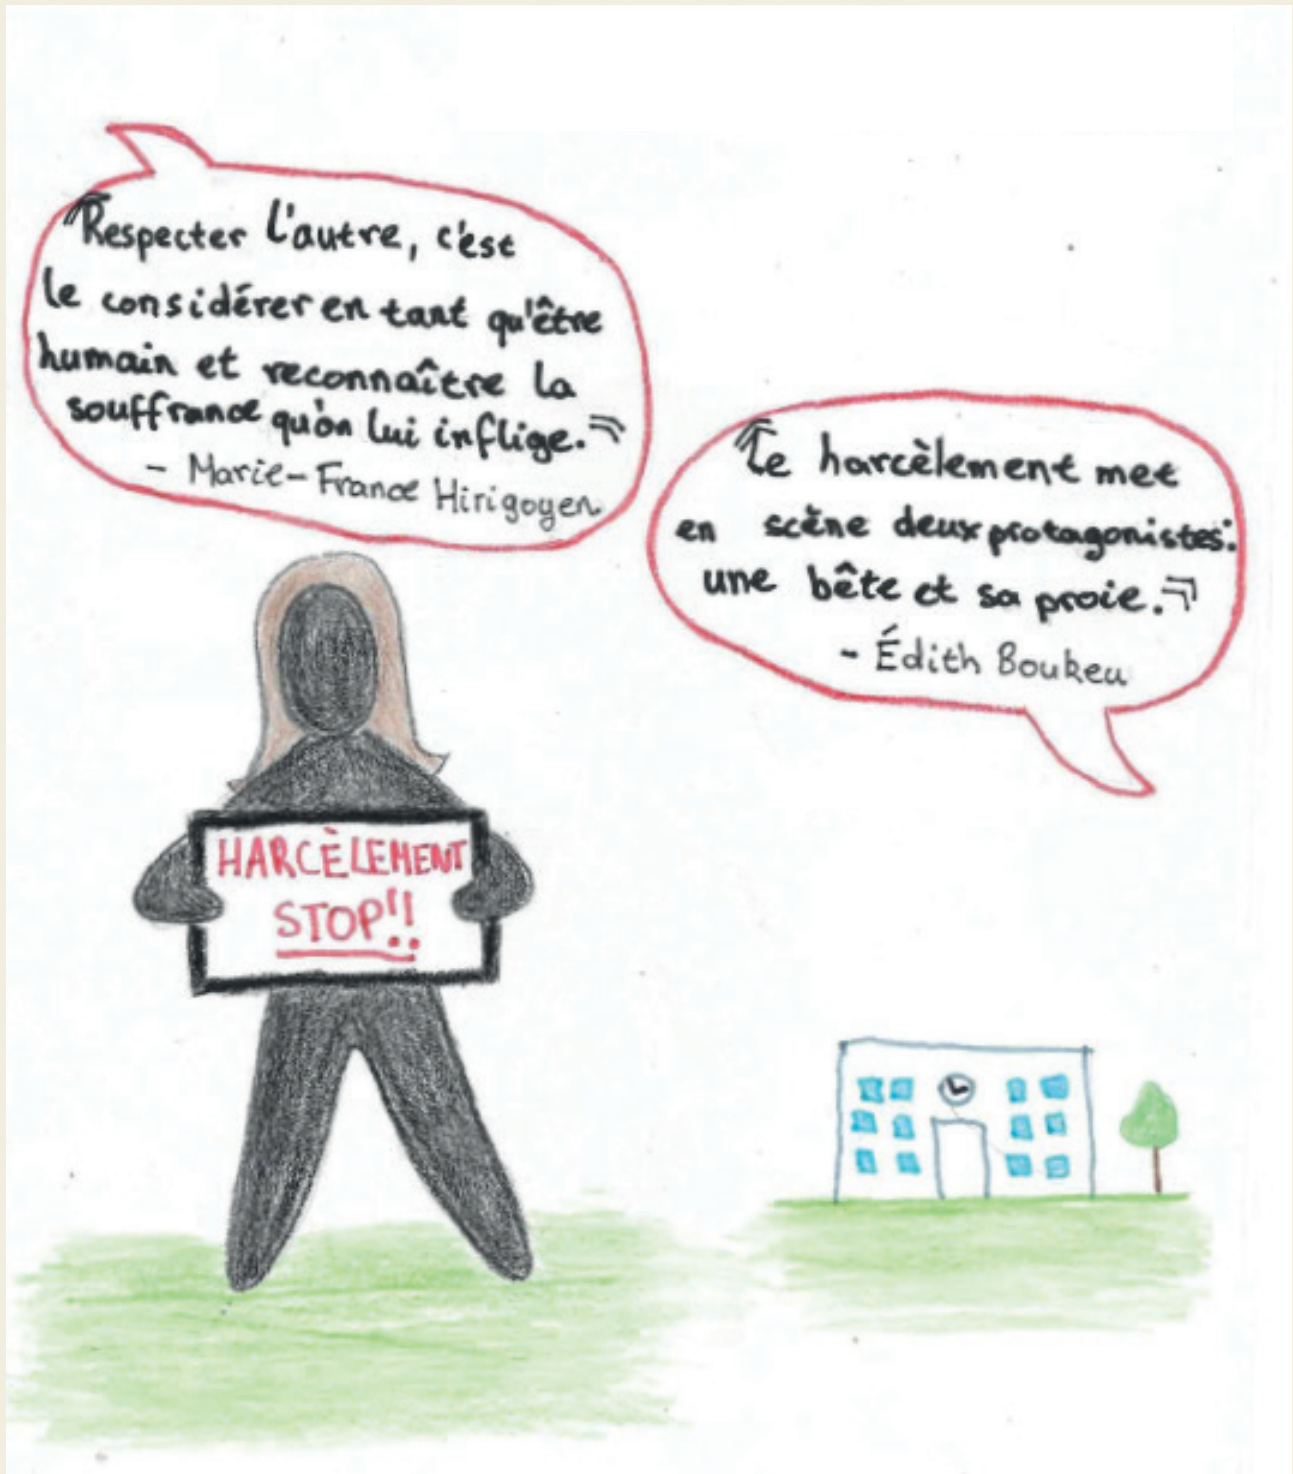 "Respecter l'autre, c'est
le considérer en tant qu'être
humain et reconnaître la
souffrance qu'on lui inflige."
- Marie-France Hirigoyen
"Le harcèlement met
en scène deux protagonistes:
une bête et sa proie."
- Édith Boukeu
HARCÈLEMENT
STOP!!